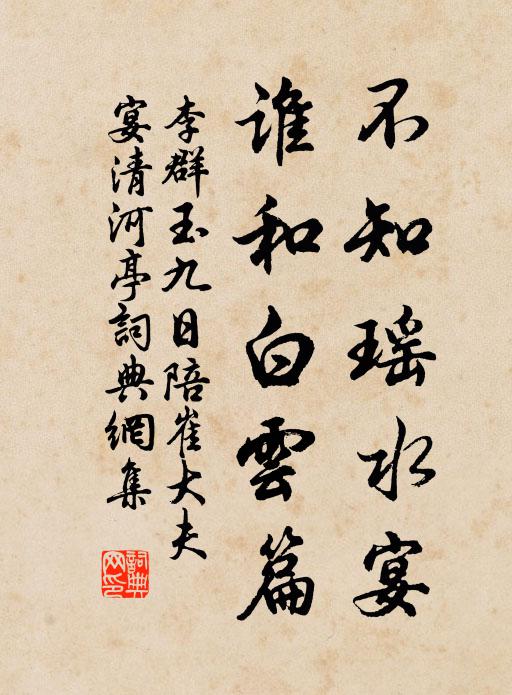 不知瑶水宴
谁和白雲篇
李群玉九日陪崔大夫
宴清河亭詞典網集
詞典
网印